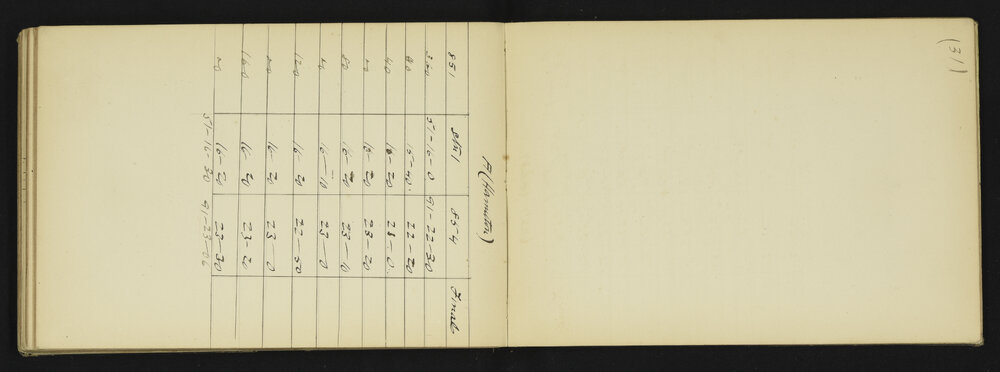 (31)
A (Hamilton)
851 Stn 1 854 Final
320 51-16-0 91-22-30
80 15-40 22-20
40 16-20 23-0
20 16-20 23-20
80 16-20 23-10
40 16-10 23-0
120 16-20 22-50
20 16-20 23-0
160 16-20 23-20
20 16-20 23-30
51-16-20 91-23-06